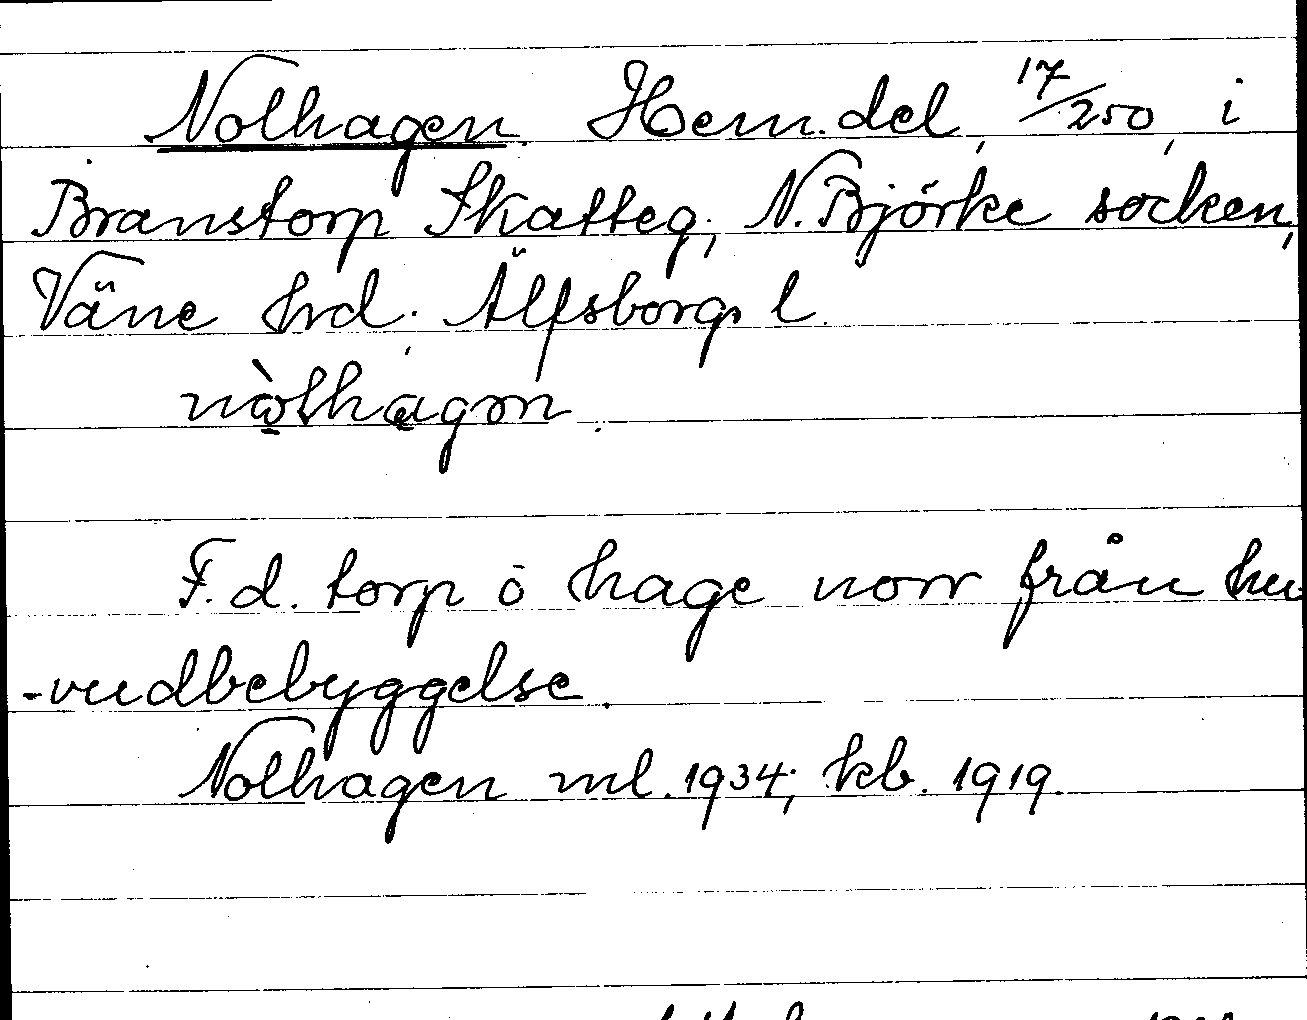 Nolhagen. Hem.del, 17/250, i
Branstorp Skatteg; N. Björke socken,
Väne hrd. Älfsborgs l.
nòlhagen.
F.d. torp ö hage norr från hu
-vudbebyggelse.
Nolhagen ml. 1934; kb. 1919.